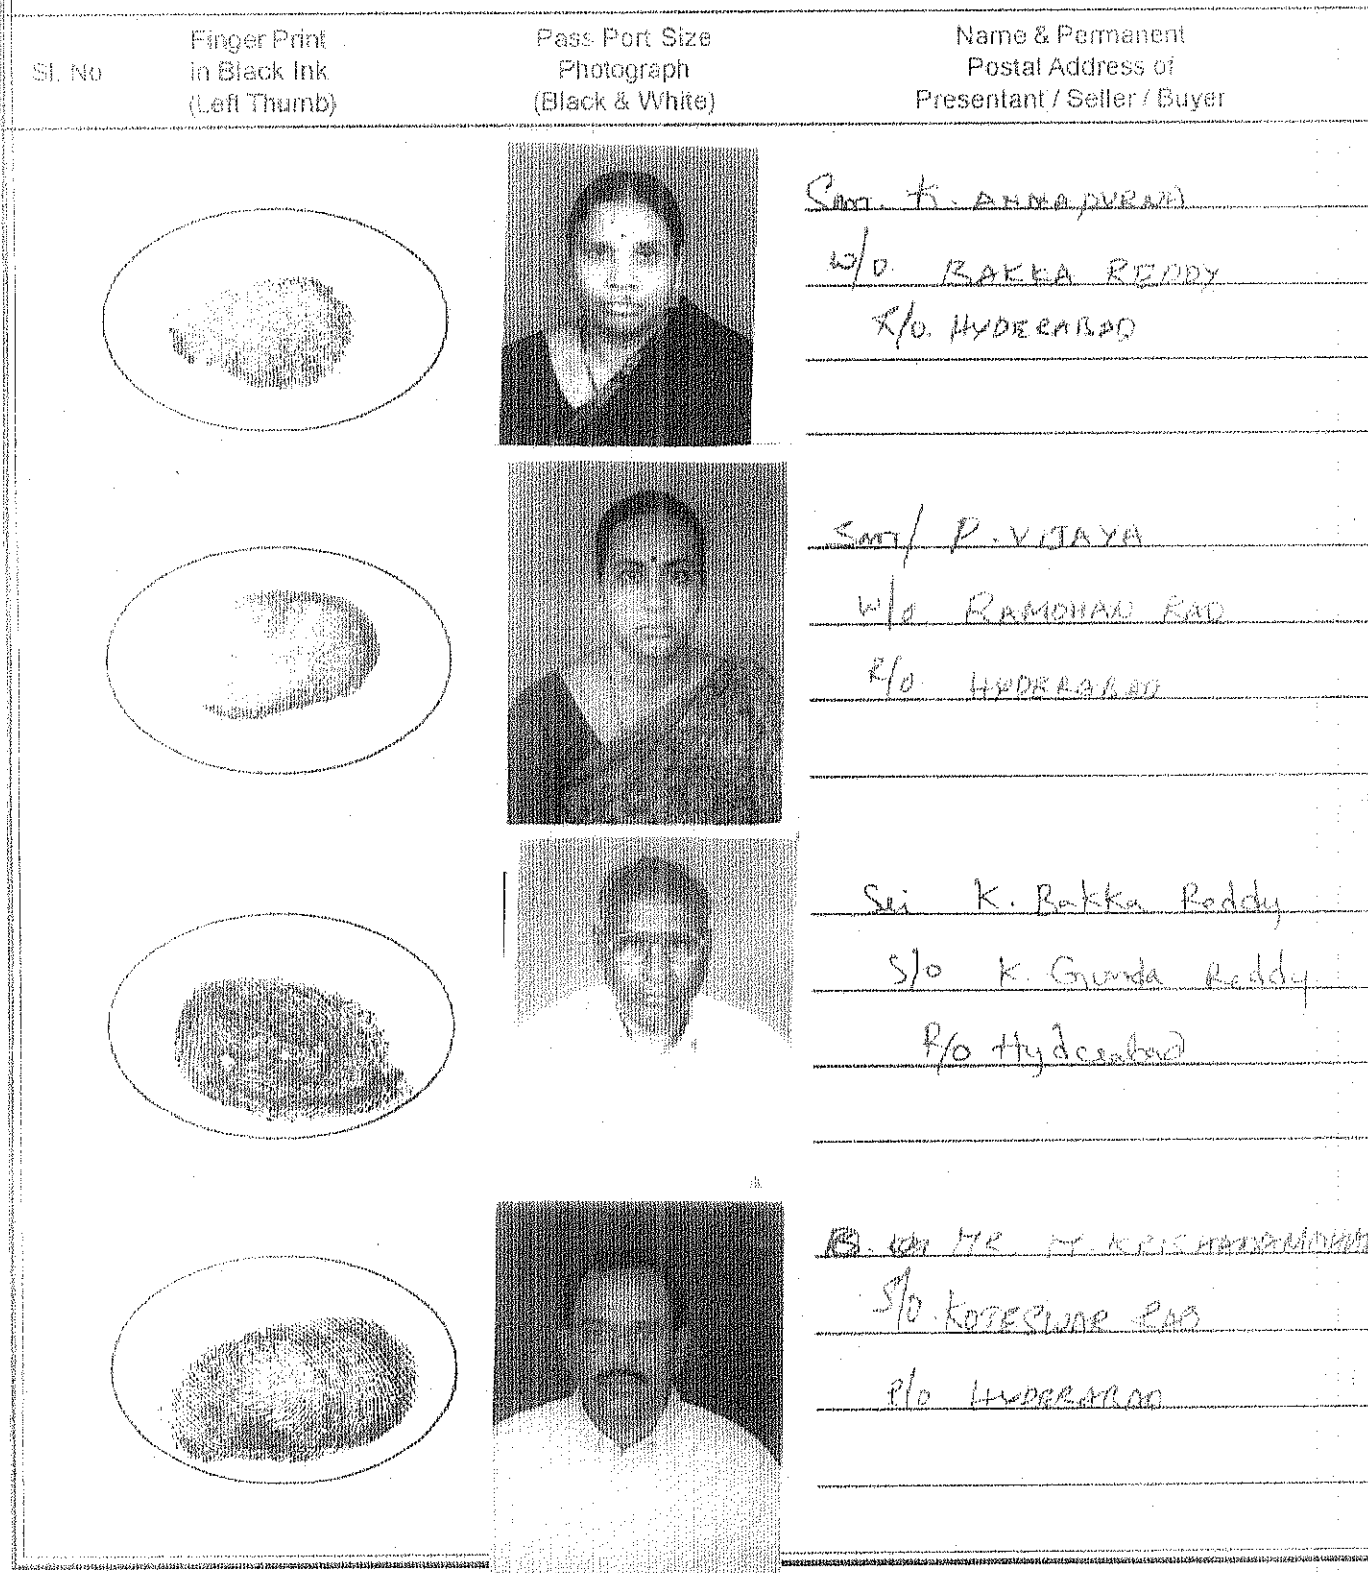 Sl. No
Finger Print
in Black Ink
(Left Thumb)
Pass Port Size
Photograph
(Black & White)
Name & Permanent
Postal Address of
Presentant / Seller / Buyer
Smt. K. ANNAPURNA
W/O. BAKKA REDDY
R/O. HYDERABAD
Smt/ P. VIJAYA
W/O. RAMOHAN RAO
R/O. HYDERABAD
Sri K. Bakka Reddy
S/o K. Gunda Reddy
R/o Hyderabad
MR. M. KRISHNAMOHAN
S/O. KOTESWAR RAO
R/O HYDERABAD